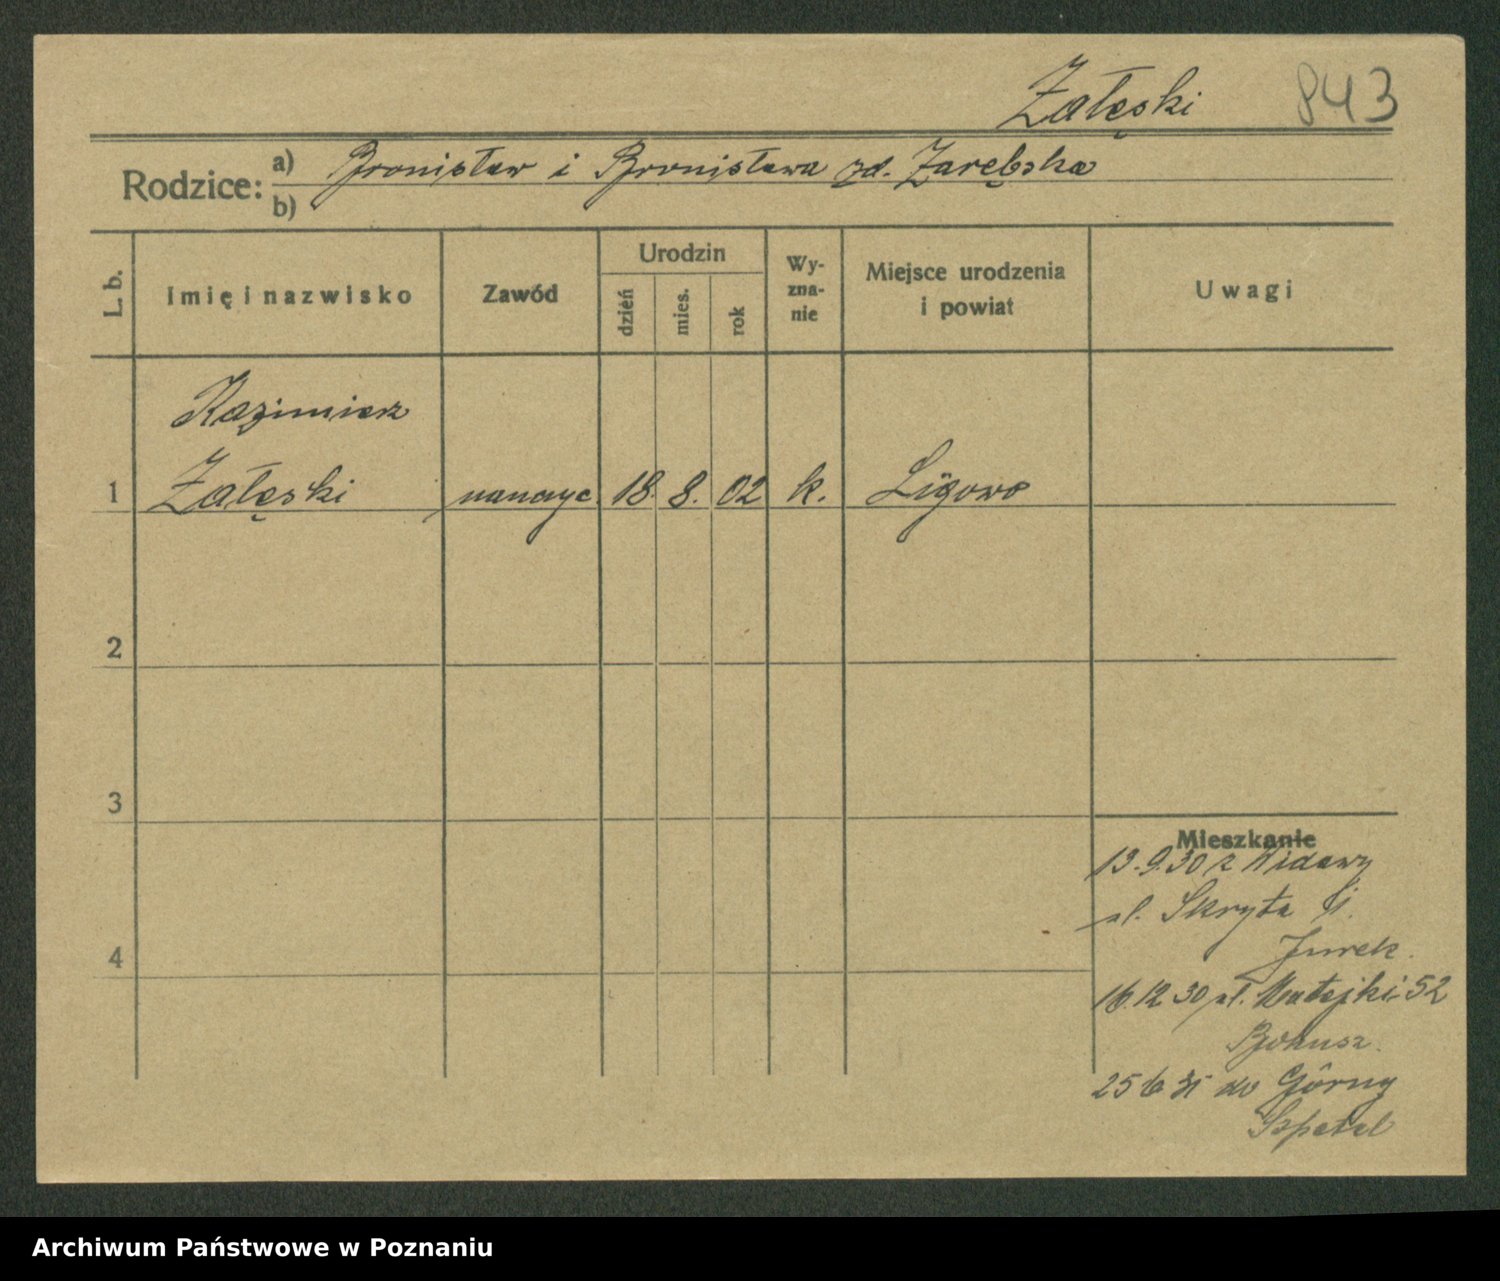 Załęski 843
Rodzice: a) Bronisław i Bronisława zd. Zarębska
b)
L. b. Imię i nazwisko Zawód Urodzin dzień mies. rok Wy-zna-nie Miejsce urodzenia i powiat Uwagi
Kazimierz
1 Załęski nauczyc. 18. 8. 02 k. Ligowo
2
3
Mieszkanie
13.9.30 z Widawy
ul. Skryta
4
Jurek.
16.12 30 ul. Matejki 52
25 6 31 do Górny
Szpetal
Archiwum Państwowe w Poznaniu